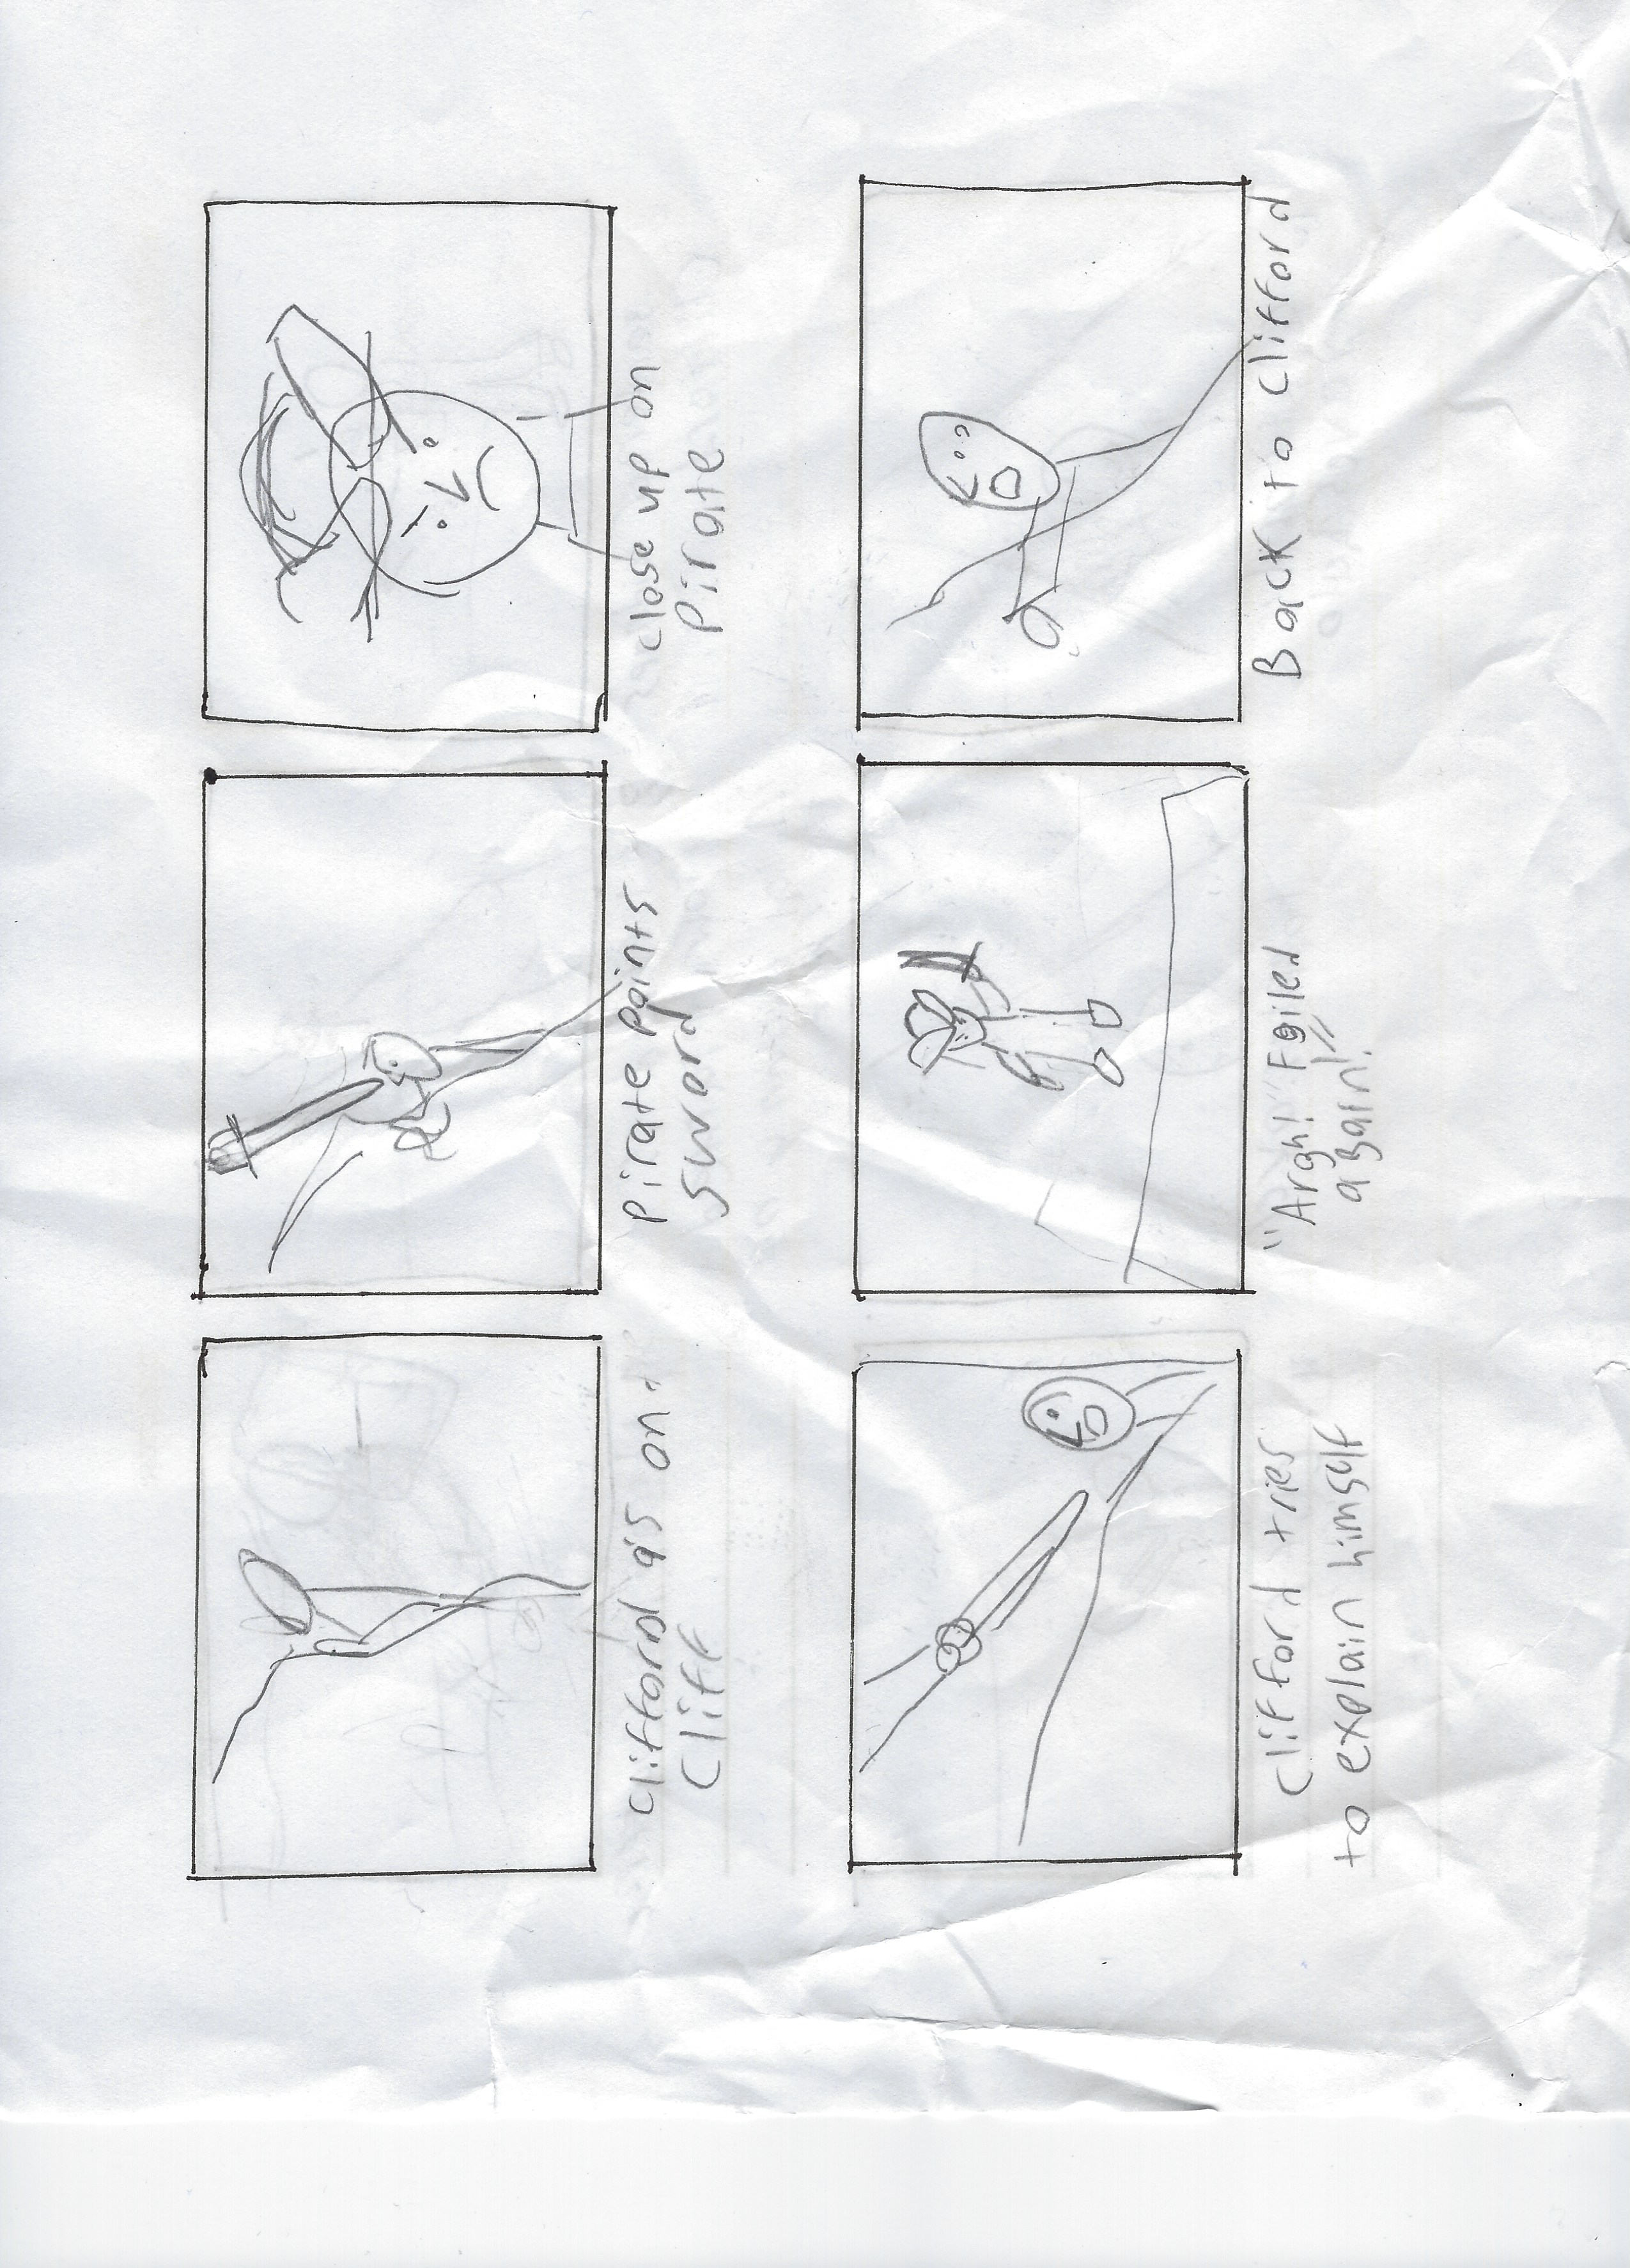 Clifford is on
Cliff
Pirate points
Sword
Close up on
Pirate
Clifford tries
to explain himself
"Argh!" Foiled
a Barn!"
Back to Clifford